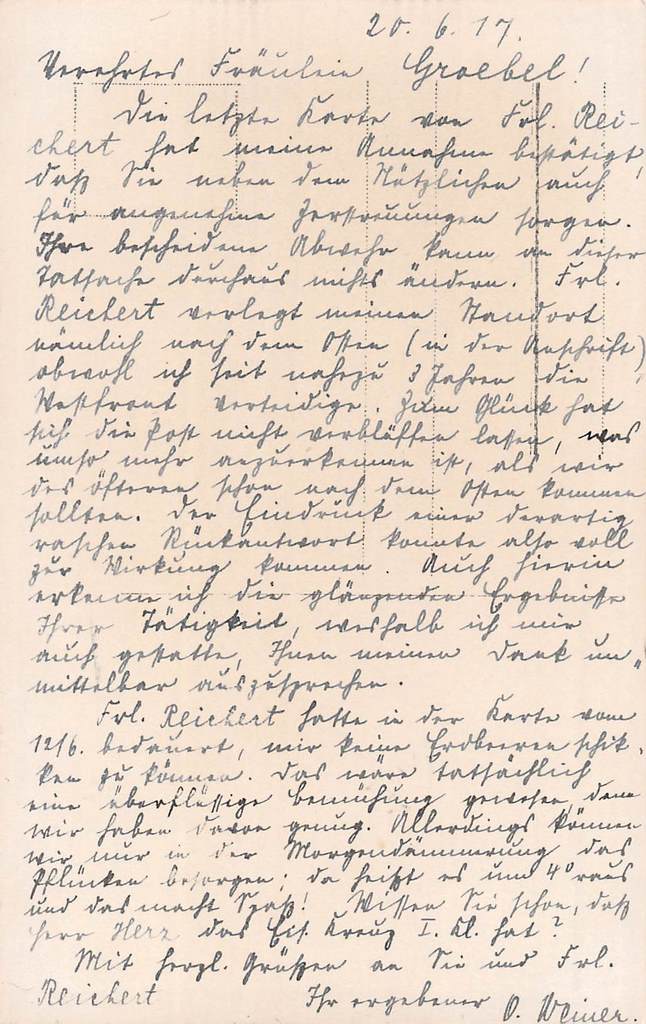 20. 6. 17.
Verehrtes Fräulein Groebel!
Die letzte Karte von Frl. Rei-
chert hat meine Annahme bestätigt,
daß Sie neben dem Nützlichen auch
für angenehme Zerstreuungen sorgen.
Ihre bescheidene Abwehr kann an dieser
Tatsache durchaus nichts ändern. Frl.
Reichert verlegt meinen Standort
nämlich nach dem Osten (in der Anschrift)
obwohl ich seit nahezu 3 Jahren die
Westfront verteidige. Zum Glück hat
sich die Post nicht verblüffen lassen, was
umso mehr anzuerkennen ist, als wir
des öfteren schon nach dem Osten kommen
sollten. Der Eindruck einer derartig
raschen Rückantwort konnte also voll
zur Wirkung kommen. Auch hierin
erkenne ich die glänzenden Ergebnisse
Ihrer Tätigkeit, weshalb ich mir
auch gestatte, Ihnen meinen Dank un-
mittelbar auszusprechen.
Frl. Reichert hatte in der Karte vom
12/6. bedauert, mir keine Erdbeeren schik-
ken zu können. Das wäre tatsächlich
eine überflüssige Bemühung gewesen, denn
wir haben davon genug. Allerdings können
wir nur in der Morgendämmerung das
Pflücken besorgen; da heißt es um 4° raus
und das macht Spaß! Wissen Sie schon, daß
Herr Herz das Eis. Kreuz I. Kl. hat?
Mit herzl. Grüßen an Sie und Frl.
Reichert Ihr ergebener O. Weiner.